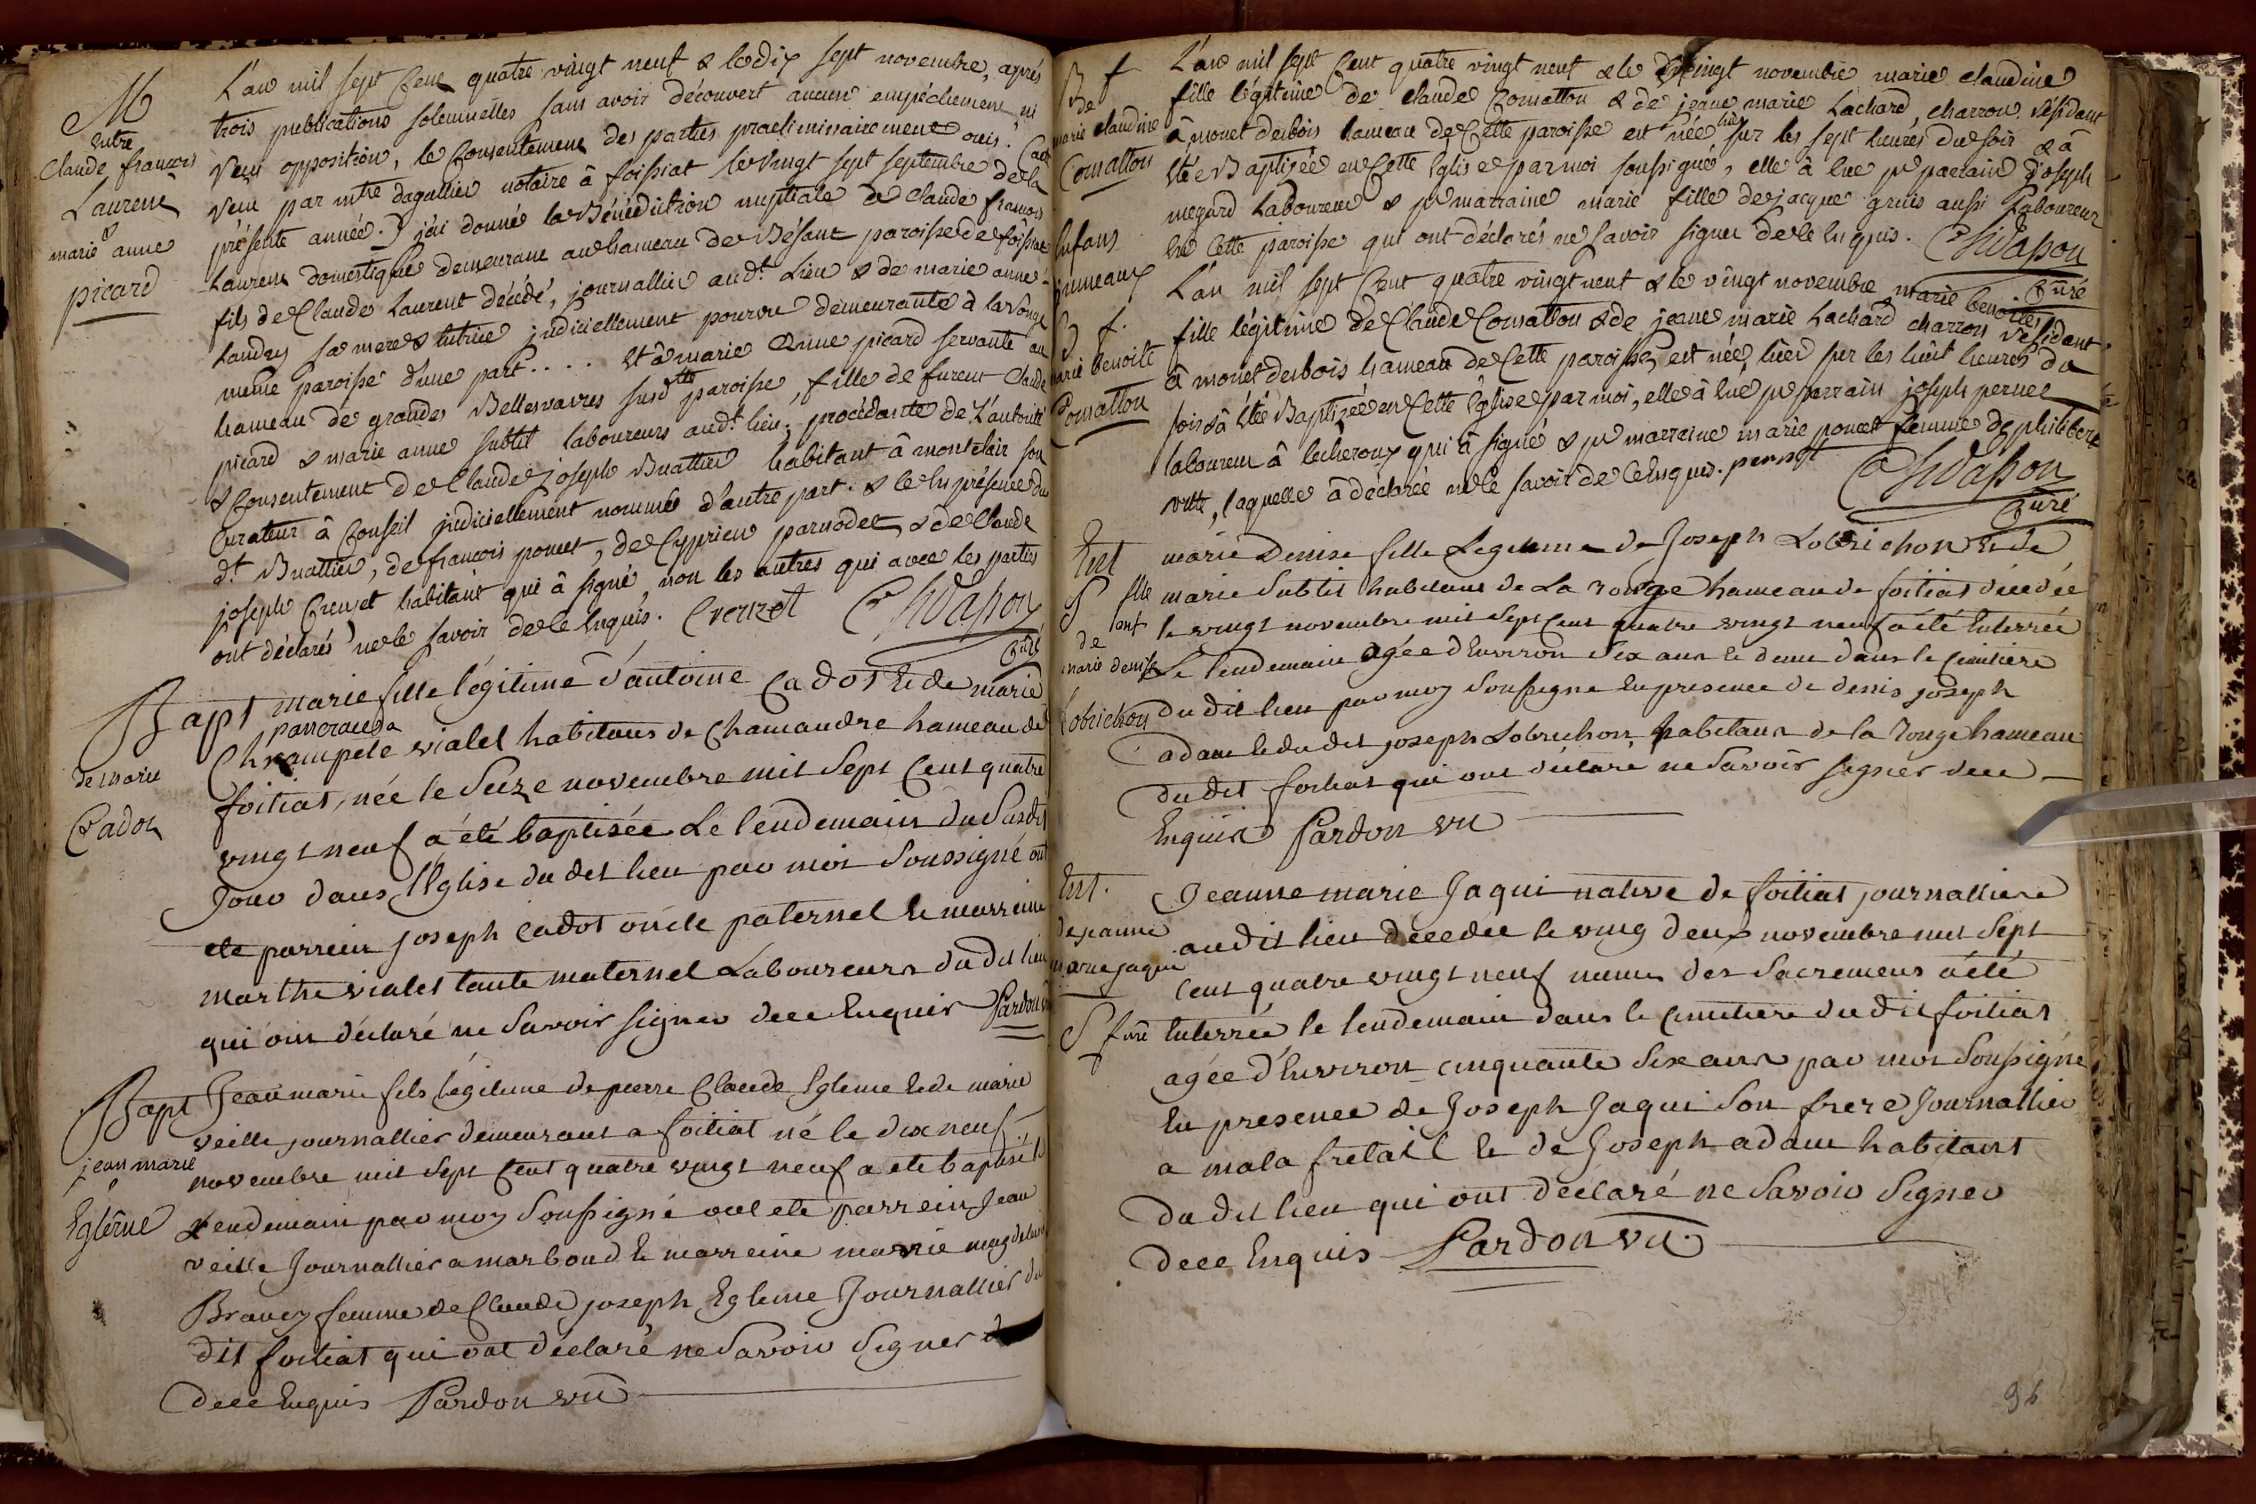 M
entre
Claude francois
Laurent
&
marie anne
picard
L'an mil sept Cent quatre vingt neuf & le dix sept novembre, après
trois publications solemnelles sans avoir découvert aucun empéchement ni
veu opposition, le Consentement des parties praeliminairement ouis.
veu par mtre dagallier notaire à foissiat le vingt sept septembre de la
présente année. j'ai donné la Bénédiction nuptiale à Claude francois
Laurent domestique demeurant au hameau de Bésant paroisse de foissiat
fils de Claude Laurent décédé, journallier aud.t Lieu & de marie anne
Landry sa mere & tutrice judiciellement pourvu demeurante à la Ronge
même paroisse d'une part.... et à marie Anne picard servante au
hameau de grandes Bellesvavres susdtte paroisse, fille de furent Claude
picard & marie anne subtil laboureurs aud.t lieu, procédante de L'autorité
& Consentement de Claude joseph Buattier habitant à montclair son
Curateur à Conseil judiciellement nommée d'autre part. & le en présence du
d.t Buattier, de francois poncet, de Cyprien parnodet, & de Claude
joseph Creuzet habitant qui â signé, non les autres qui avec les parties
ont déclarés ne le savoir de ce enquis. Creuzet Chvasson
Curé
Bapt
de marie
Cadot
marie fille légitime d'antoine Cadot et de marie
pancrauda
Champele vialet habitans de Chamandre hameau de
foitiat, née le seize novembre mil sept Cent quatre
vingt neuf a été baptisée Le lendemain du susdit
jour dans l'Eglise du dit lieu par moi soussigné ont
ete parrein joseph cadot oncle paternel et marreine
marthe vialet tante maternel Laboureurs du dit lieu
qui ont déclaré ne savoir signer dece Enquis Pardon vic
Bapt
jean marie
Egléme
Jean marie fils légitime de pierre Claude Egleme et de marie
veille journallier demeurant a foitiat né le dix neuf
novembre mil sept Cent quatre vingt neuf a ete baptisé le
Lendemain par moy soussigné ont ete parrein Jean
veille Journallier a marboud et marreine marie magdelaine
Bravey femme de Claude joseph Egleme Journallier du
dit foitiat qui ont déclaré ne savoir signer
dece Enquis Pardon vic
B f
de
marie claudine
Consatton
Enfans
Jumeaux
B f.
marie benoite
Consatton
L'an mil sept Cent quatre vingt neuf & le vingt novembre marie claudine
fille légitime de claude Consatton & de jeanne marie Lachard, charron, résidant
â monet desbois hameau de Cette paroisse est née hier sur les sept heures du soir & â
été Baptisée en Cette Eglise par moi soussigné, elle à eue pr parrain Joseph
megard Laboureur & pr marraine marie fille de jacque gruis aussi Laboureur
en Cette paroisse qui ont déclarés ne savoir signer de ce Enquis. Chvasson
Curé
L'an mil sept Cent quatre vingt neuf & le vingt novembre marie benoite
fille légitime de Claude Consatton & de jeanne marie Lachard charron résidant
à monet desbois hameau de Cette paroisse, est née hier sur les huit heures du
soir & â été Baptizée en Cette Eglise par moi, elle à eue pr parrain joseph pernet
laboureur à lecheroux qui â signé & pr marraine marie poncet femme de philibert
vitte, laquelle â déclarée ne le savoir de ce Enquis. pernet Chvasson
Curé
Ent
S fille
enf
de
marie denise
Lobrichon
marie Denise fille Legitime de Joseph Lobrichon et de
marie Subtil habitans de La ronge hameau de foitiat décedée
le vingt novembre mil sept Cent quatre vingt neuf a été Enterrée
Le lendemain agée d'Environ Six ans et demi dans le Cimitiere
du dit lieu par moy soussigné en presence de denis joseph
adam et du dit joseph Lobrichon habitans de la Ronge hameau
du dit foitiat qui ont déclaré ne savoir signer dece
Enquis Pardon vic
Ent.
de jeanne
marie jaqui
S fme
Jeanne marie Jaqui native de foitiat journalliere
au dit lieu décedée le ving deux novembre mil sept
cent quatre vingt neuf munie des Sacremens a été
Enterrée le lendemain dans le Cimitiere du dit foitiat
agée d'Environ cinquante six ans par moi soussigné
En presence de Joseph Jaqui son frere Journallier
a mala fretail et de Joseph adam habitans
du dit lieu qui ont déclaré ne savoir signer
dece Enquis Pardon vic